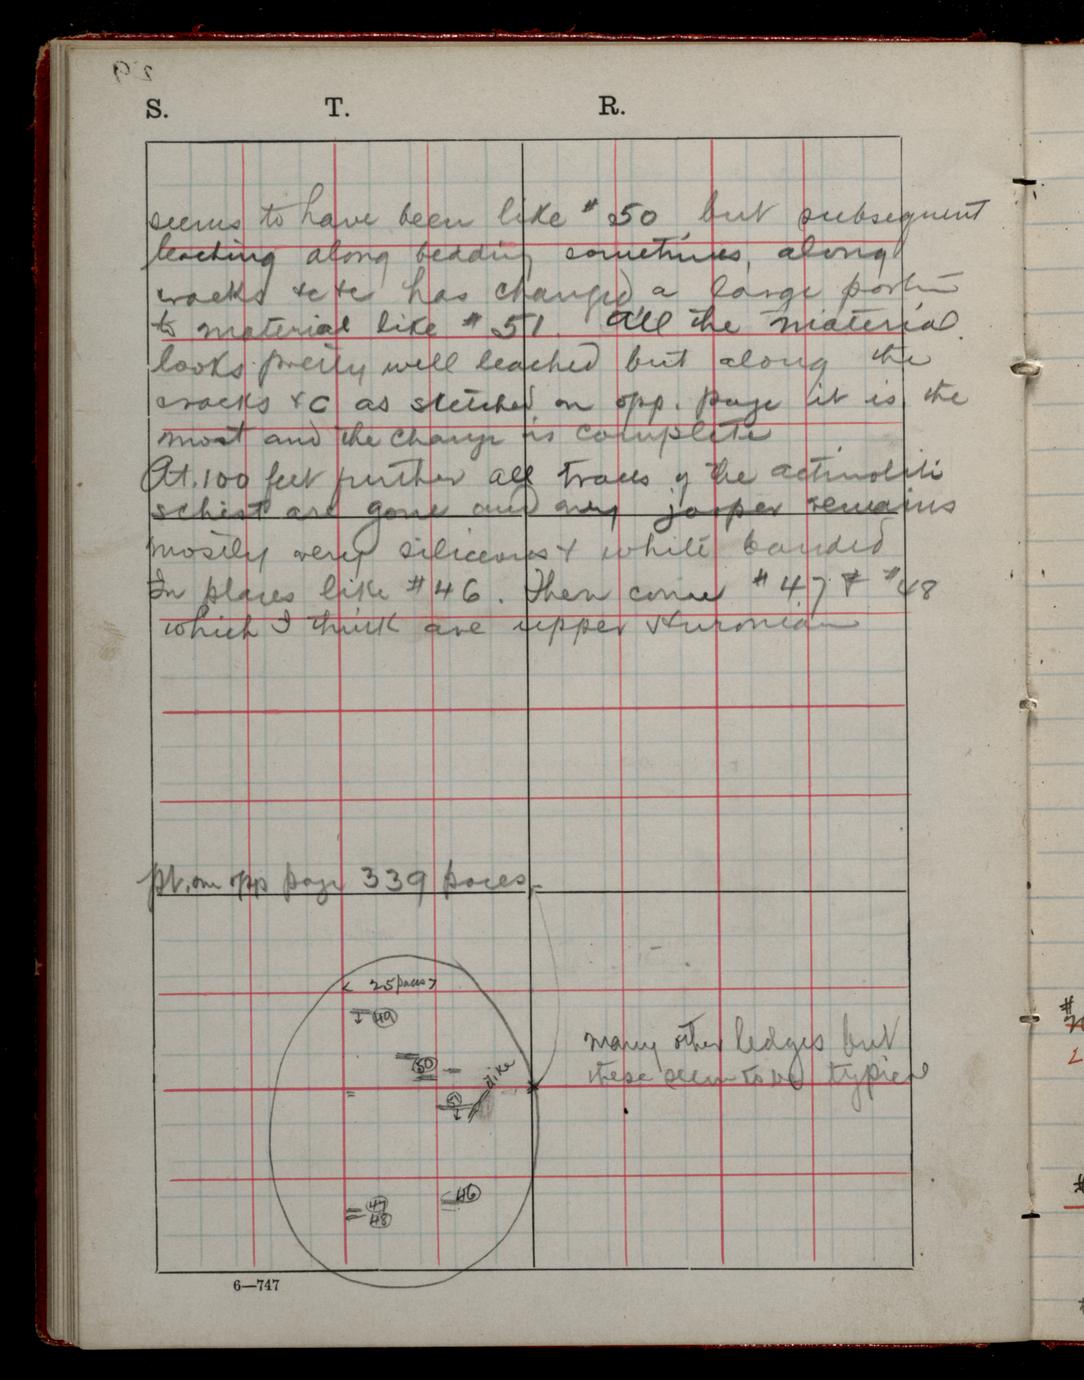 29
S. T. R.
seems to have been like #50, but subsequent
leaching along bedding sometimes, along
cracks &c &c has changed a large portion
to material like #51. All the material
looks pretty well leached but along the
cracks &c as sketched on opp. page it is the
most and the change is complete
At 100 feet further all traces of the actinolite
schist are gone and only jasper remains
mostly very siliceous & white banded
In places like #46. Then come #47 & #48
which I think are upper Huronian
pt. on opp page 339 paces
< 25 paces >
49
50
dike
51
46
47
48
many other ledges but
these seem to be typical
6—747